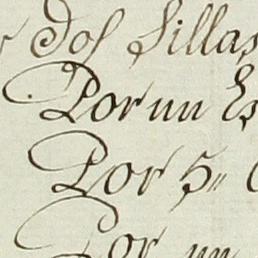 Dos Sillas
Por un Es
Por 5,,
Por un